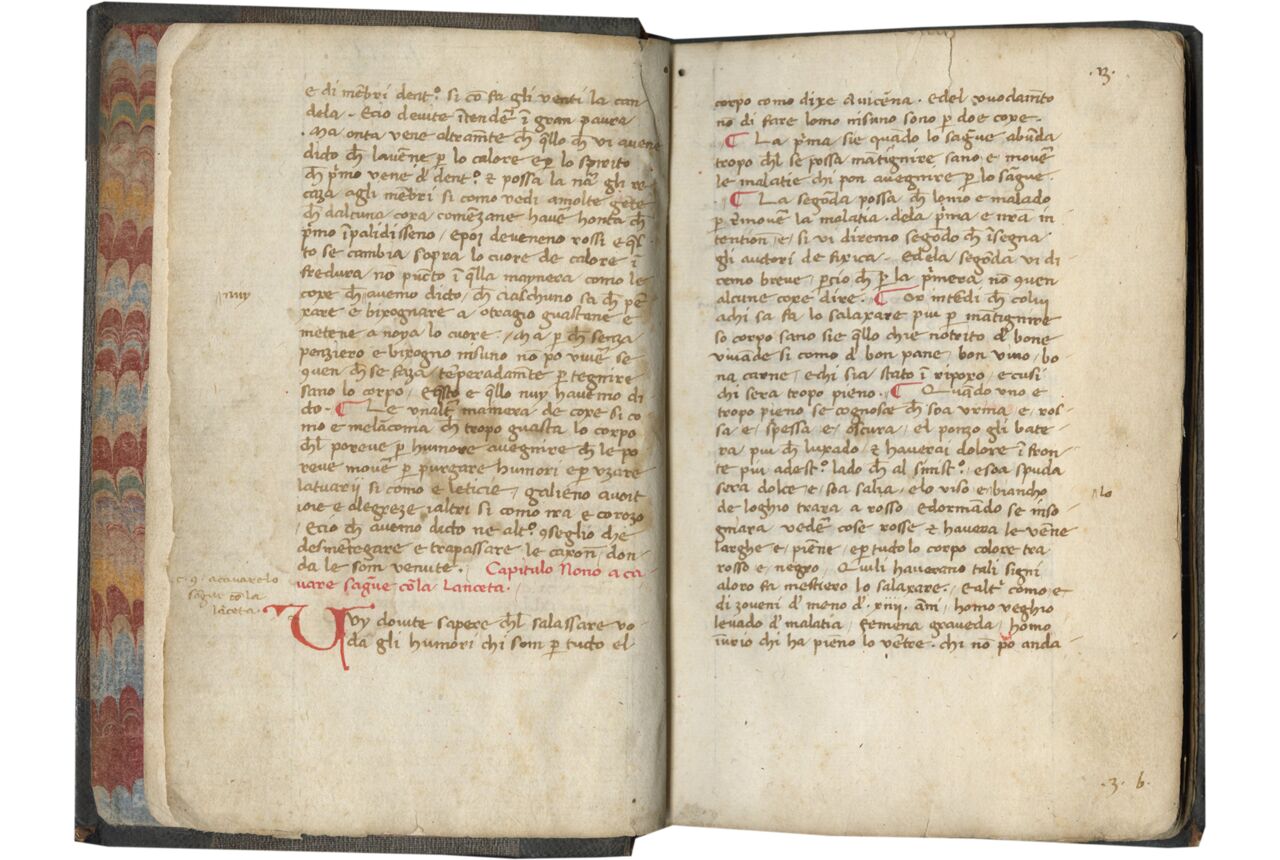 e di mẽbri dent.º si cõ fa gli venti la can-
dela. Ecio devite ĩtendẽ ĩ gran paura
Ma onta vene altramẽte cħ q̃llo cħ vi avemo
dicto cħ la vẽne ꝑ lo calore e ꝑ lo spirito
cħ p̃mo vene d' dent.º & possa la nã gli re
caza agli mẽbri si como vedi a molte gẽte
cħ dalcuna coxa comẽzane havẽ honta cħ
p̃mo ĩpalidisseno / e poi deveneno rossi e q̃s
to se cambia sopra lo cuore de calore ĩ
fredura nõ pũcto ĩ q̃lla maynera como le
nuy
coxe cħ avemo dicto / cħ ciaschuno sa cħ pẽ
xare e bixognare a otragio guastane e
metene a noya lo cuore. Ma ꝑ cħ senza
penziero e bixogno nisuno nõ po vivẽ se
9uen cħ se faza tẽperadamẽte ꝑ tegnire
sano lo corpo / E q̃sto e q̃llo nuy havemo di
cto. Le unaltr̃ mainera de coxe si co-
mo e melãconia cħ tropo guasta lo corpo
chl poreve ꝑ humore avegnire cħ le po
reve movẽ ꝑ purgare humori e ꝑ uzare
latuarij si como e leticie / galieno avoit
ioie e alegreze / altri si como ira e corozo
Ecio cħ avemo dicto ne alt.º 9seglio che
desmẽtegare e trapassare le caxon / don-
da le som venute. Capitulo Nono a ca
vare sagũe cõ la Lanceta.
c. 9. a cavare lo
sagũe cõ la
lãceta.
Vvy dovite sapere chl salassare vo-
da gli humori chi som ꝑ tucto el
.13.
corpo como dixe Avicẽna. E del 9vodamẽto
nõ di fare lomo nisuno sono ꝑ doe coxe.
La p̃ma sie quãdo lo sagũe abũda
tropo chl se possa mãtignire sano e movẽ
le malatie chi pon avegnire ꝑ lo sague.
La segõda possa cħ lomo e malado
ꝑ rimovẽ la malatia. dela p̃ma e nr̃a in
tention e / si vi diremo segõdo cħ ĩsegna
gli autori de fixica. E dela segõda vi di
remo breve / ꝑcio cħ ꝑ la p̃mera nõ 9uen
alcune coxe dire. Or intẽdi cħ colui
a chi sa fa lo salaxare piu ꝑ mãtignire
so corpo sano sie q̃llo chi e notrito d' bone
vivãde si como d' bon pane / bon vino / bo
na carne / e chi sia stato ĩ riposo / e cusi
chi sera tropo pieno. Quãdo uno e
tropo pieno se cognosce cħ soa urina e ros-
sa e / spessa e / oscura / el ponzo gli bate-
ra piu cħ luxado / & haverai dolore ĩ fron-
te piu a dest.º lado cħ al sinist.º / e soa spuda
sera dolce e / soa salia / e lo viso e / biancho
lo
de loghio trara a rosso / E dormãdo se inso-
gniara vedẽ cose rosse & havera le vẽne
larghe e / piẽne / e ꝑ tudo lo corpo colore tra
rosso e / negro / Quili haverano tali signi
aloro fa mestiero lo salaxare. E altr̃ como e
di zoveni d' meno d' .xiiii. ãni / homo veghio
levado d' malatia / femena graveda / homo
iurio chi ha pieno lo vẽtre. chi nõ po anda
.3. b.